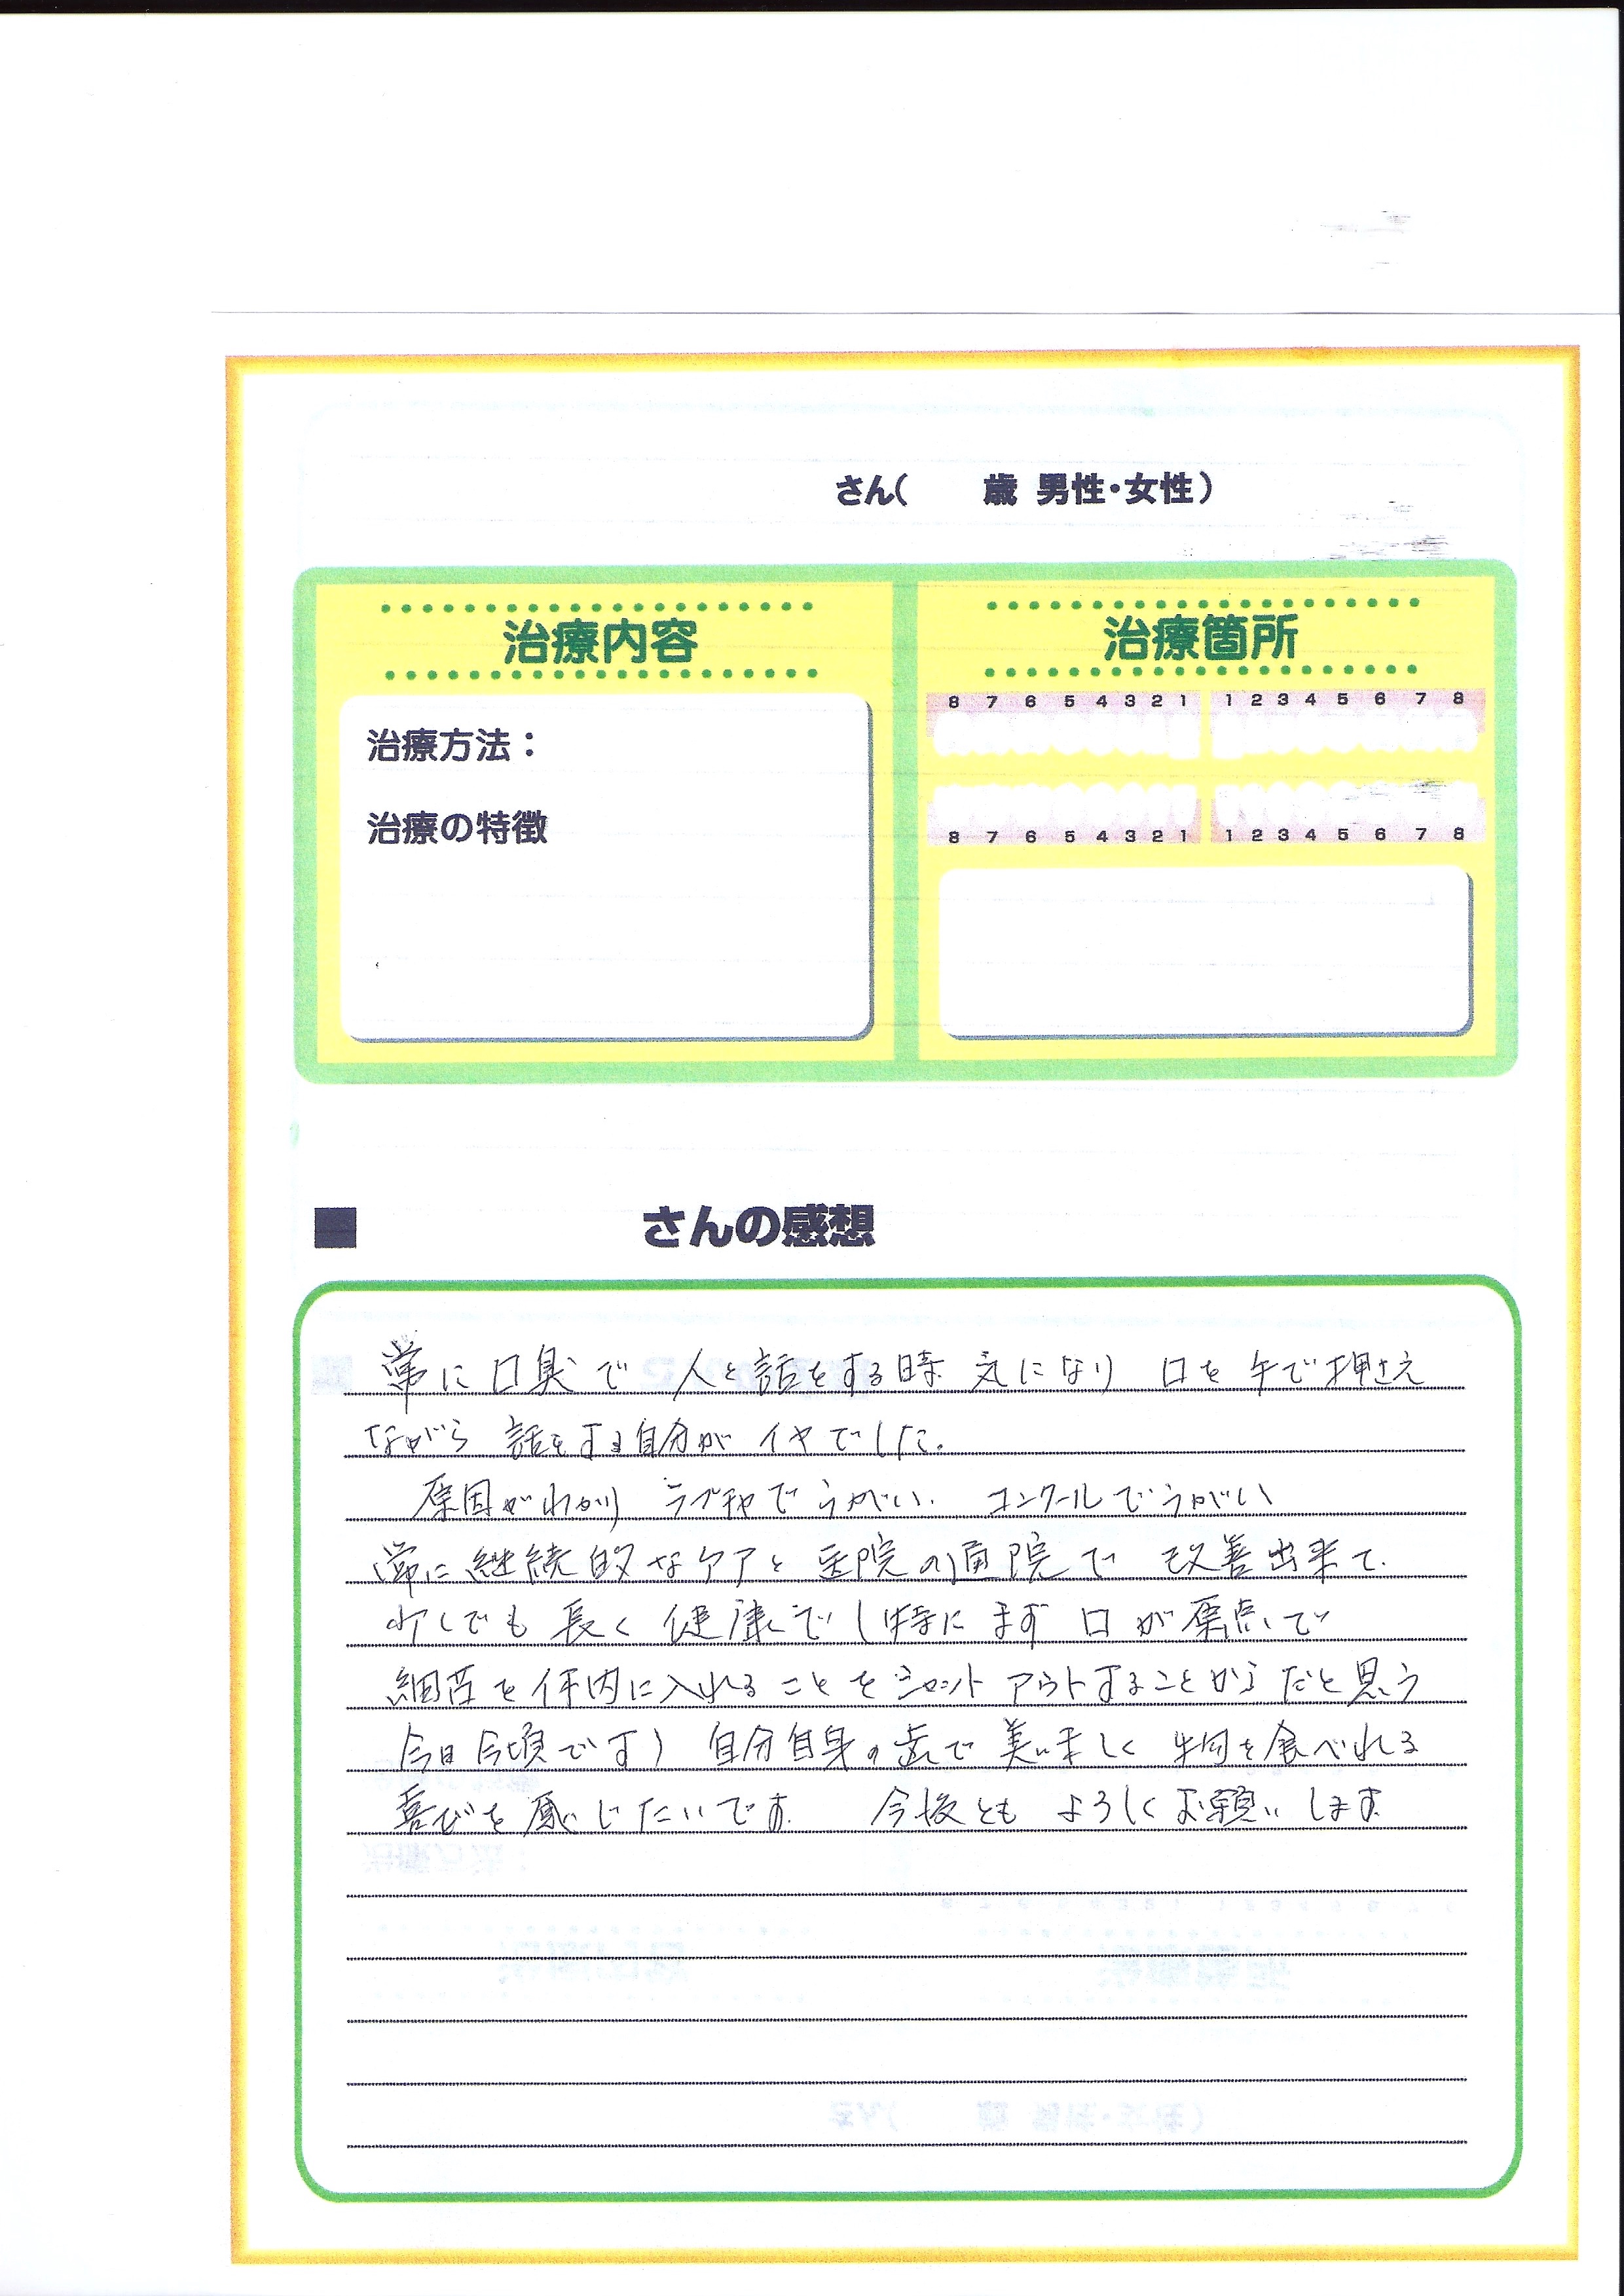 さん(　　歳 男性・女性)
治療内容
治療箇所
8 7 6 5 4 3 2 1 1 2 3 4 5 6 7 8
治療方法：
治療の特徴
8 7 6 5 4 3 2 1 1 2 3 4 5 6 7 8
■　　さんの感想
常に口臭で 人と話をする時 気になり 口を手で押さえ
ながら 話をする自分が イヤでした。
原因がわかり でうがい、コンクールでうがい
常に継続的なケアと 医院の通院で 改善出来て、
少しでも 長く 健康で 特に まず 口が 原点で
細菌を体内に入れることをシャットアウトすることからだと思う
今日今頃です) 自分自身の歯で 美味しく 物を食べれる
喜びを 感じたいです。今後とも よろしくお願いします。